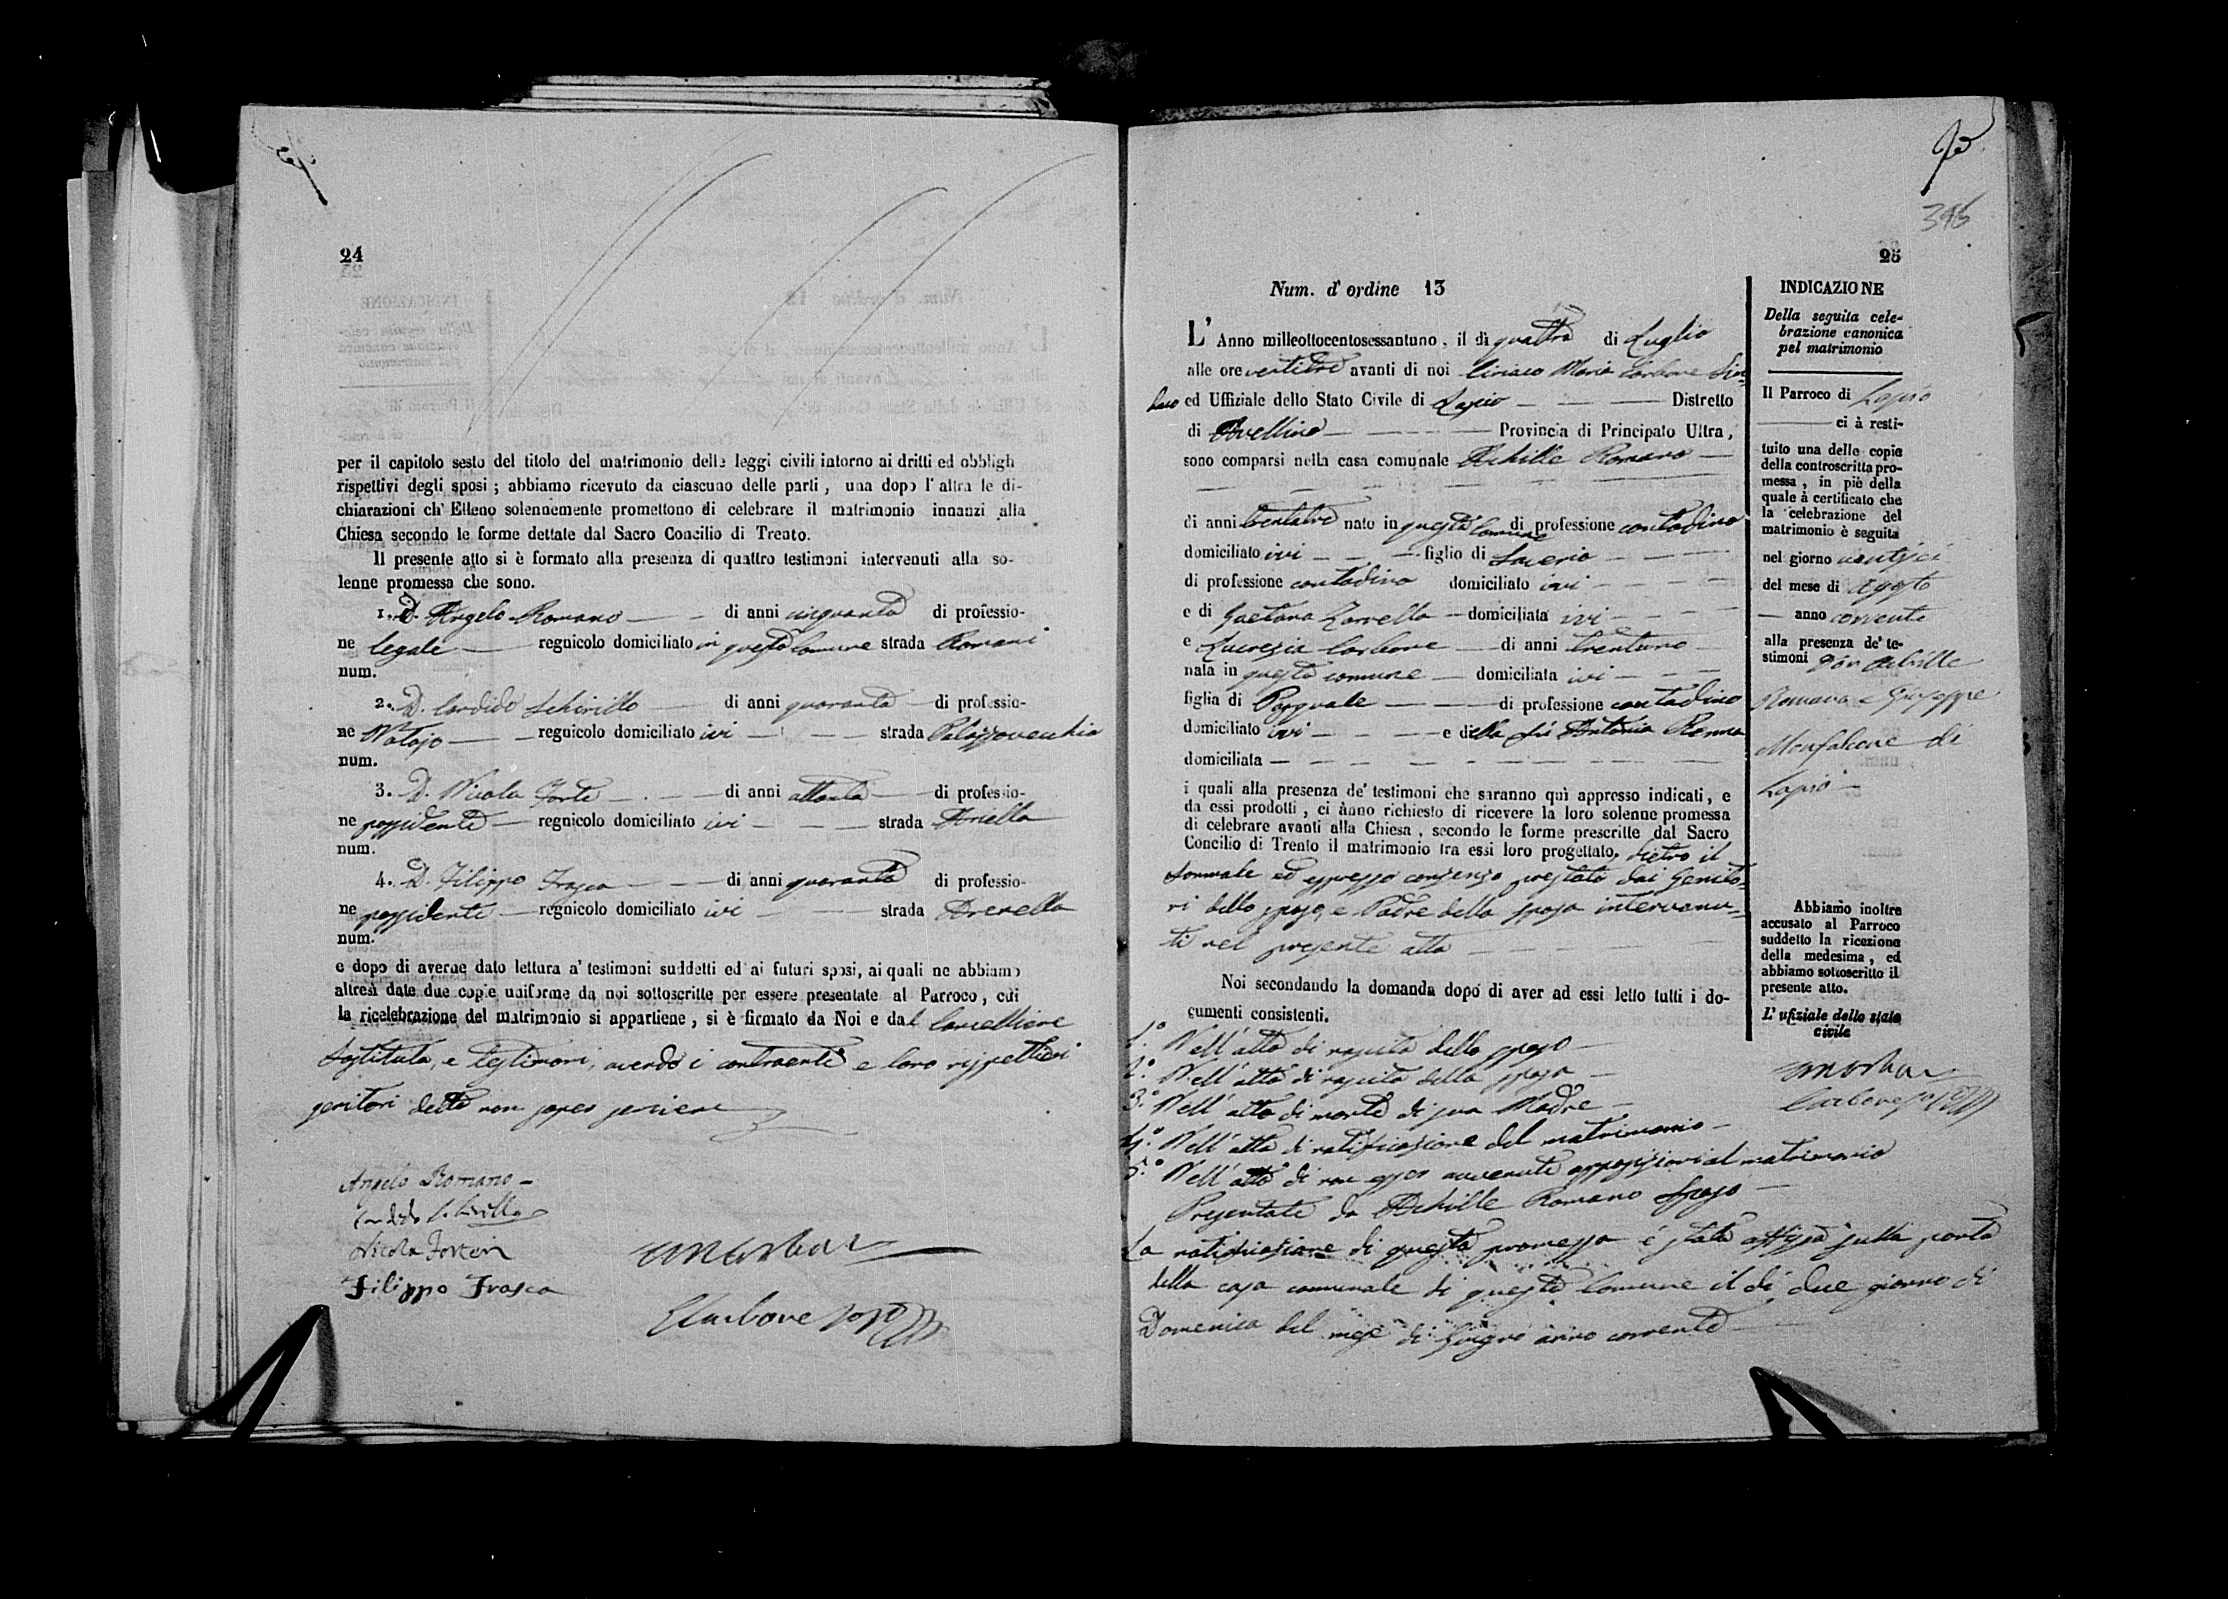 24
per il capitolo sesto del titolo del matrimonio delle leggi civili intorno ai dritti ed obbligh
rispettivi degli sposi ; abbiamo ricevuto da ciascuno delle parti , una dopo l' altra le di-
chiarazioni ch' Elleno solennemente promettono di celebrare il matrimonio innanzi alla
Chiesa secondo le forme dettate dal Sacro Concilio di Trento.
Il presente atto si è formato alla presenza di quattro testimoni intervenuti alla so-
lenne promessa che sono.
1. D. Angelo Romano di anni cinquanta di professio-
ne legale regnicolo domiciliato in questo Comune strada Romani
num.
2. D. Candido Schirillo di anni quaranta di professio-
ne Notajo regnicolo domiciliato ivi strada Palazzovecchio
num.
3. D. Nicola Forte di anni ottanta di professio-
ne possidente regnicolo domiciliato ivi strada Ariella
num.
4. D. Filippo Frasca di anni quaranta di professio-
ne possidente regnicolo domiciliato ivi strada
num.
e dopo di averne dato lettura a' testimoni suddetti ed ai futuri sposi, ai quali ne abbiamo
altresì date due copie uniforme da noi sottoscritte per essere presentate al Parroco, cui
la ricelebrazione del matrimonio si appartiene , si è firmato da Noi e dal Cancelliere
Sostituto, e testimoni, avendo i contraenti e loro rispettivi
genitori detto non saper scrivere
Angelo Romano
Candido Schirillo
Nicola Forte
Filippo Frasca
Carbone
25
Num. d' ordine 13
L' Anno milleottocentosessantuno , il dì quattro di Luglio
alle ore ventitre avanti di noi Ciriaco Maria Carbone Sin-
daco ed Uffiziale dello Stato Civile di Lapio Distretto
di Avellino Provincia di Principato Ultra ,
sono comparsi nella casa comunale Achille Romano
di anni trentatre nato in questo Comune di professione contadino
domiciliato ivi figlio di Saverio
di professione contadino domiciliato ivi
e di Gaetana Zarrella domiciliata ivi
e Lucrezia Carbone di anni trentuno
nata in questo comune domiciliata ivi
figlia di Pasquale di professione contadino
domiciliato ivi e della fù Antonia Romano
domiciliata
i quali alla presenza de' testimoni che saranno quì appresso indicati , e
da essi prodotti , ci ànno richiesto di ricevere la loro solenne promessa
di celebrare avanti alla Chiesa , secondo le forme prescritte dal Sacro
Concilio di Trento il matrimonio tra essi loro progettato, dietro il
formale ed espresso consenso prestato dai Genito-
ri dello sposo, e Padre della sposa intervenu-
ti nel presente atto
Noi secondando la domanda dopo di aver ad essi letto tutti i do-
cumenti consistenti.
1.° Nell' atto di nascita dello sposo
2.° Nell' atto di nascita della sposa
3.° Nell' atto di morte di sua Madre
4.° Nell' atto di notificazione del matrimonio
5.° Nell' atto di non esser avvenute opposizioni al matrimonio
Presentate da Achille Romano Sposo
La notificazione di questa promessa é stata affissa sulla porta
della casa comunale di questo Comune il dì due giorno di
Domenica del mese di Giugno anno corrente
INDICAZIONE
Della seguita cele-
brazione canonica
pel matrimonio
Il Parroco di Lapio
ci à resti-
tuito una delle copie
della controscritta pro-
messa , in piè della
quale à certificato che
la celebrazione del
matrimonio è seguita
nel giorno
del mese di Agosto
anno corrente
alla presenza de' te-
stimoni Achille
Romano e Giuseppe
Monfalcone di
Lapio
Abbiamo inoltre
accusato al Parroco
suddetto la ricezione
della medesima , ed
abbiamo sottoscritto il
presente atto.
L' ufiziale dello stato
civile
Carbone